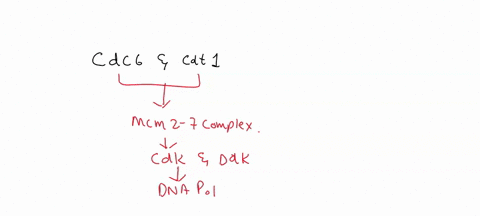 Cdc6 & cdt1
Mcm2-7 Complex.
Cdk & Ddk
DNA Pol